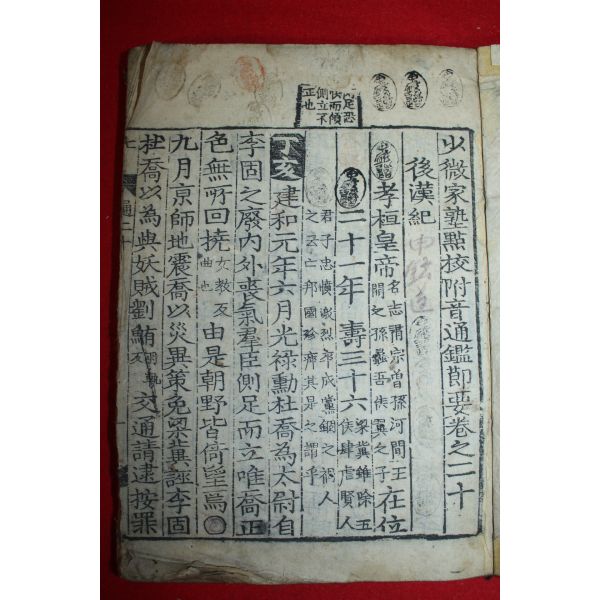 少微家塾點校附音通鑑節要卷之二十
後漢紀
孝桓皇帝 名志肅宗曾孫河間王開之孫蠡吾侯翼之子 在位
二十一年 壽三十六 梁冀雖除五侯肆虐賢人
君子忠憤激烈卒成黨錮之禍人之云亡邦國殄瘁其是之謂乎
丁亥 建和元年六月光祿勳杜喬為太尉自
李固之廢內外喪氣羣臣側足而立唯喬正
色無所回撓 女教反曲也 由是朝野皆倚望焉○
九月京師地震喬以災異策免梁冀誣李固
杜喬以為與妖賊劉鮪 交通請逮按罪
足恐
側立不
正也
通二十